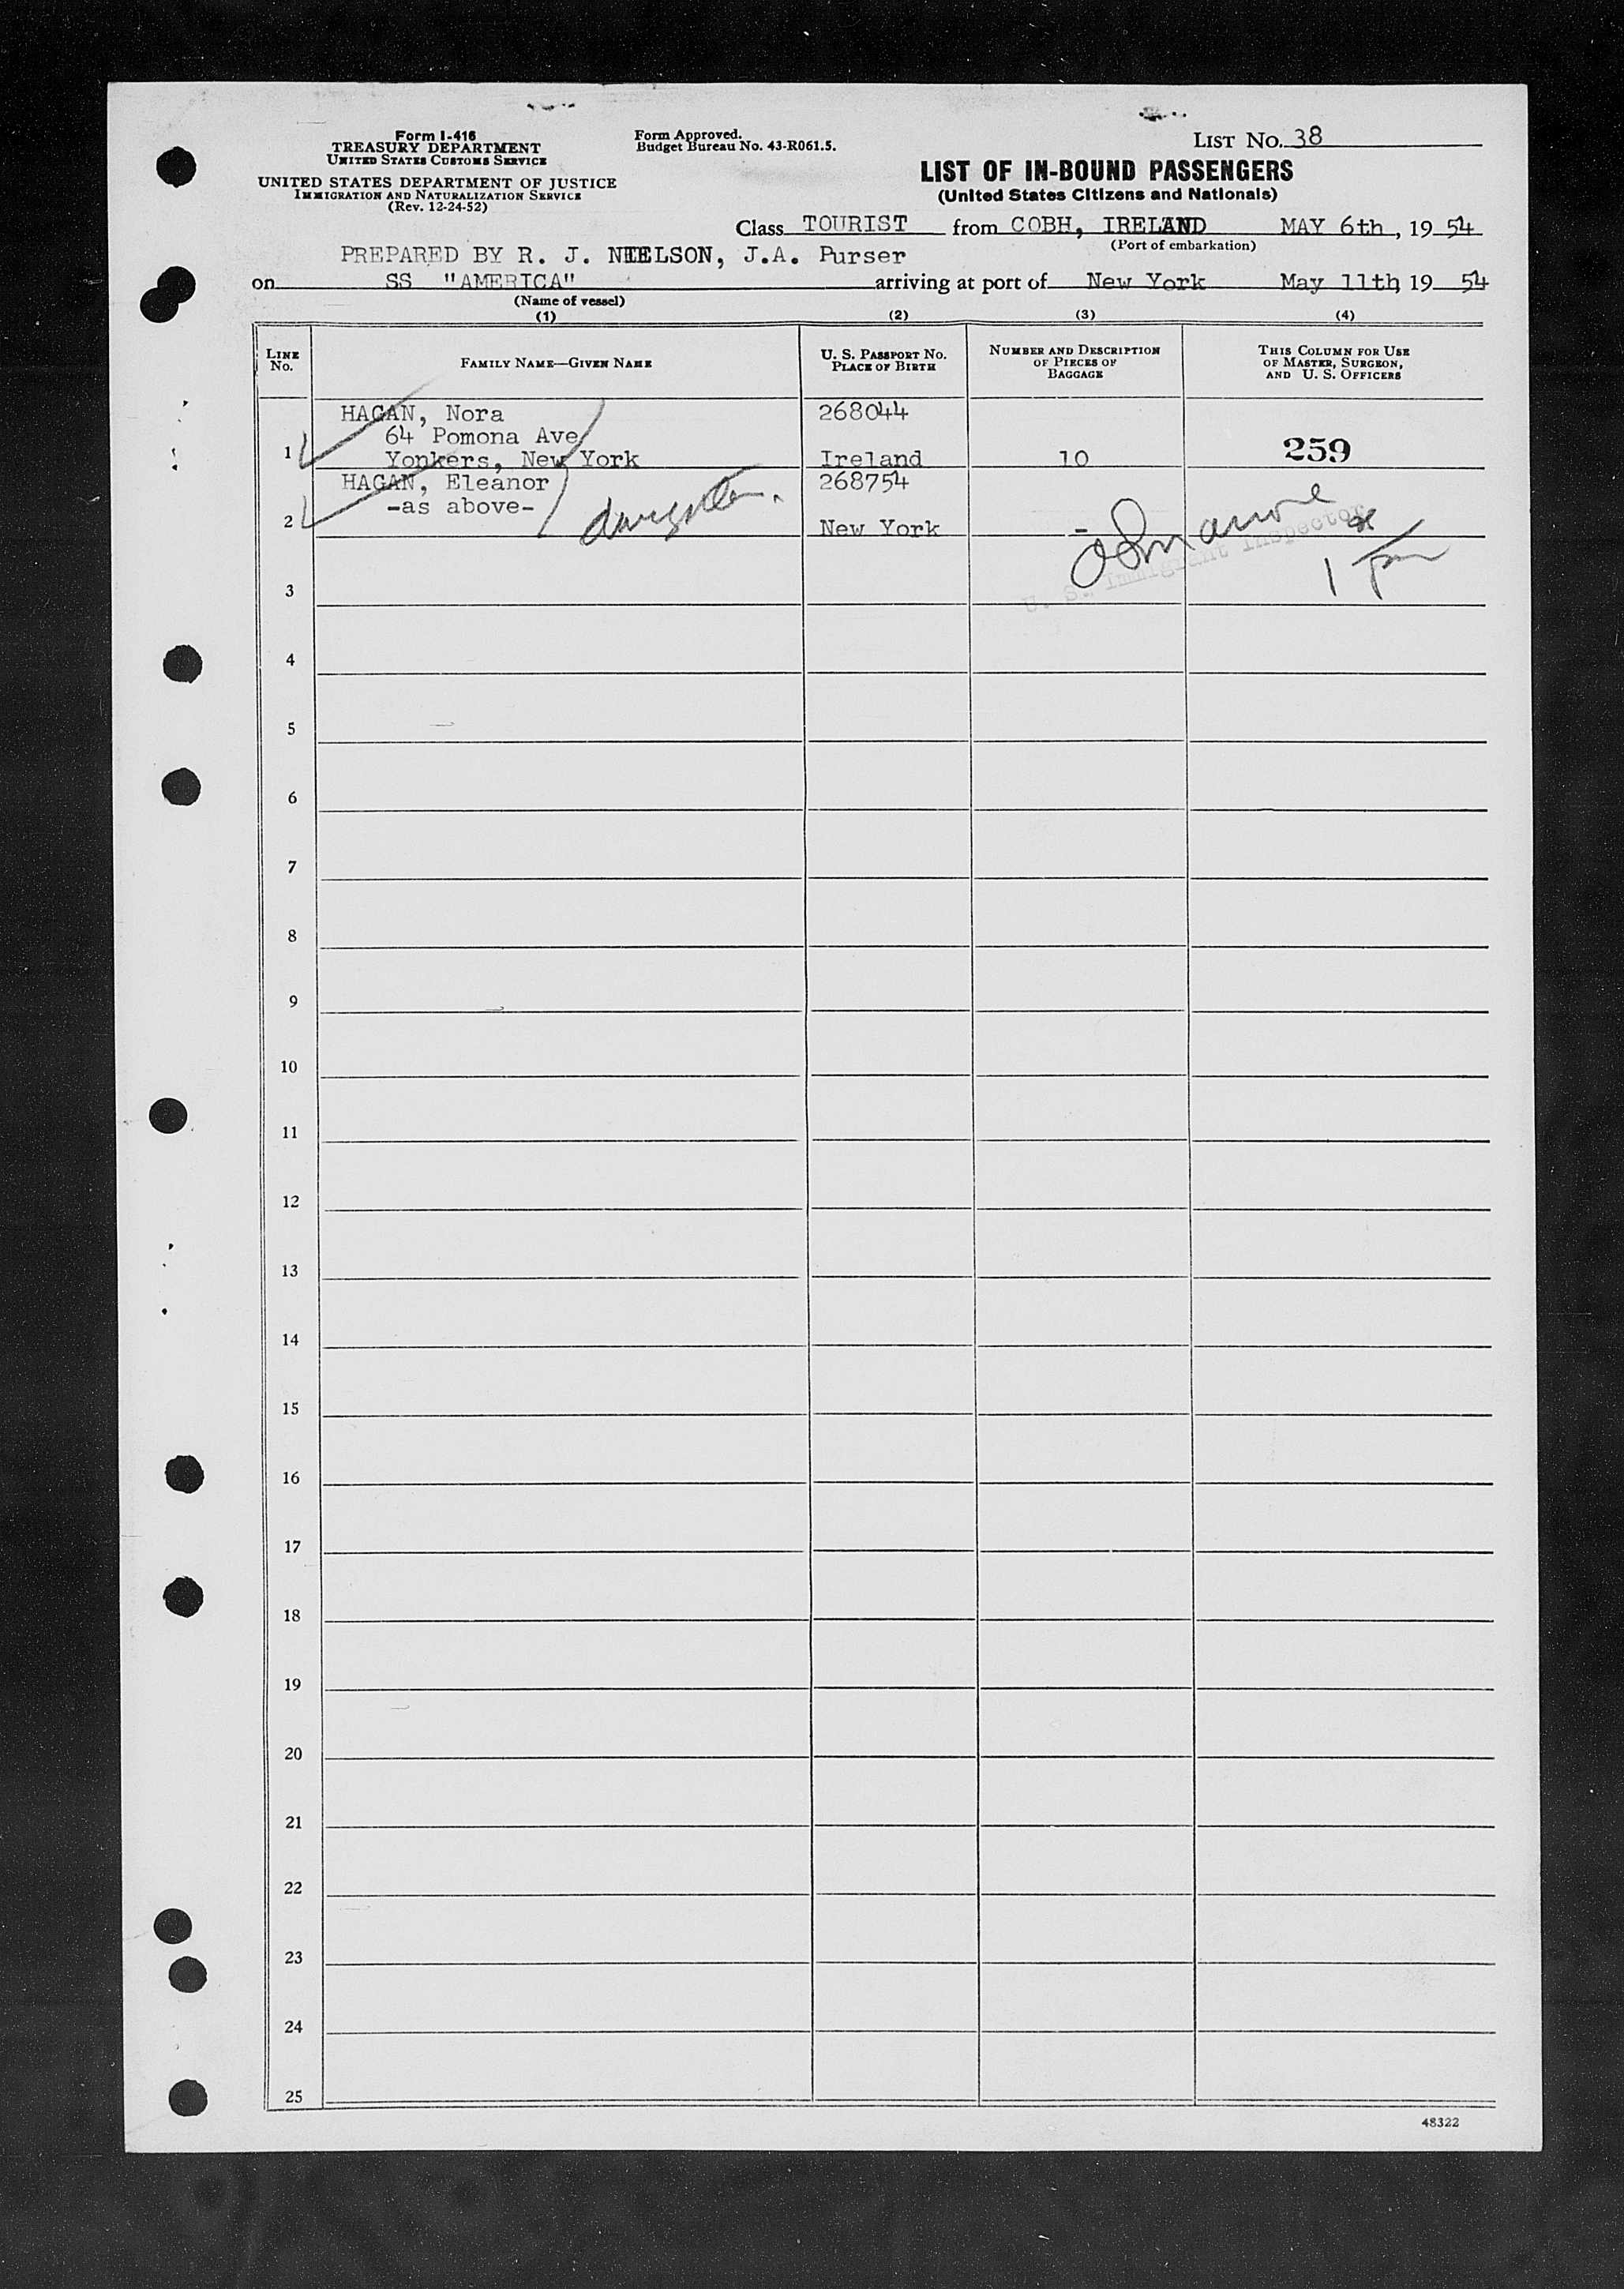 Form I-416
TREASURY DEPARTMENT
UNITED STATES CUSTOMS SERVICE
UNITED STATES DEPARTMENT OF JUSTICE
IMMIGRATION AND NATURALIZATION SERVICE
(Rev. 12-24-52)
Form Approved.
Budget Bureau No. 43-R061.5.
LIST No. 38
LIST OF IN-BOUND PASSENGERS
(United States Citizens and Nationals)
Class TOURIST from COBH, IRELAND MAY 6th, 19 54
(Port of embarkation)
PREPARED BY R. J. NIELSON, J.A. Purser
on SS "AMERICA" arriving at port of New York May 11th, 19 54
(Name of vessel)
(1) (2) (3) (4)
LINE No. FAMILY NAME—GIVEN NAME U. S. PASSPORT No. PLACE OF BIRTH NUMBER AND DESCRIPTION OF PIECES OF BAGGAGE THIS COLUMN FOR USE OF MASTER, SURGEON, AND U. S. OFFICERS
HAGAN, Nora 268044
64 Pomona Ave
1 Yonkers, New York Ireland 10 259
HAGAN, Eleanor 268754
-as above- daughter.
2 New York -
U. S. Immigrant Inspector
1 pm
3
4
5
6
7
8
9
10
11
12
13
14
15
16
17
18
19
20
21
22
23
24
25
48322